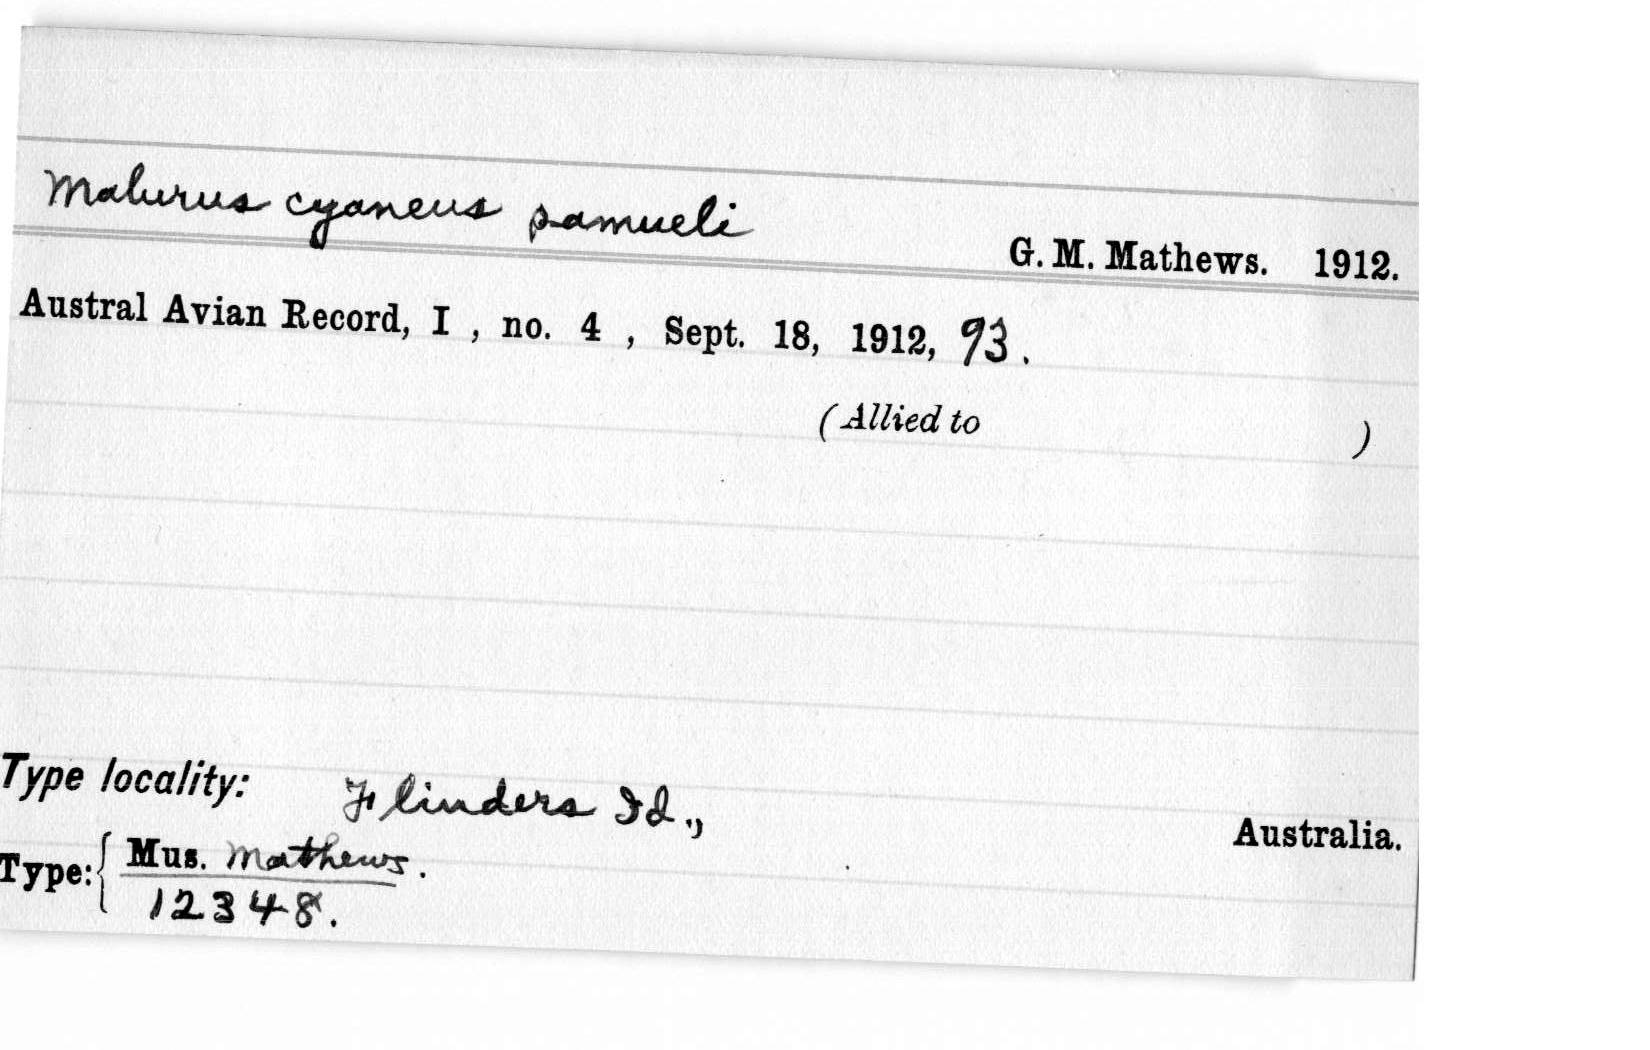 Malurus cyaneus samueli
G. M. Mathews. 1912.
Austral Avian Record, I , no. 4 , Sept. 18, 1912, 93.
(Allied to )
Type locality: Flinders Id.,
Australia.
Type: { Mus. Mathews.
12348.